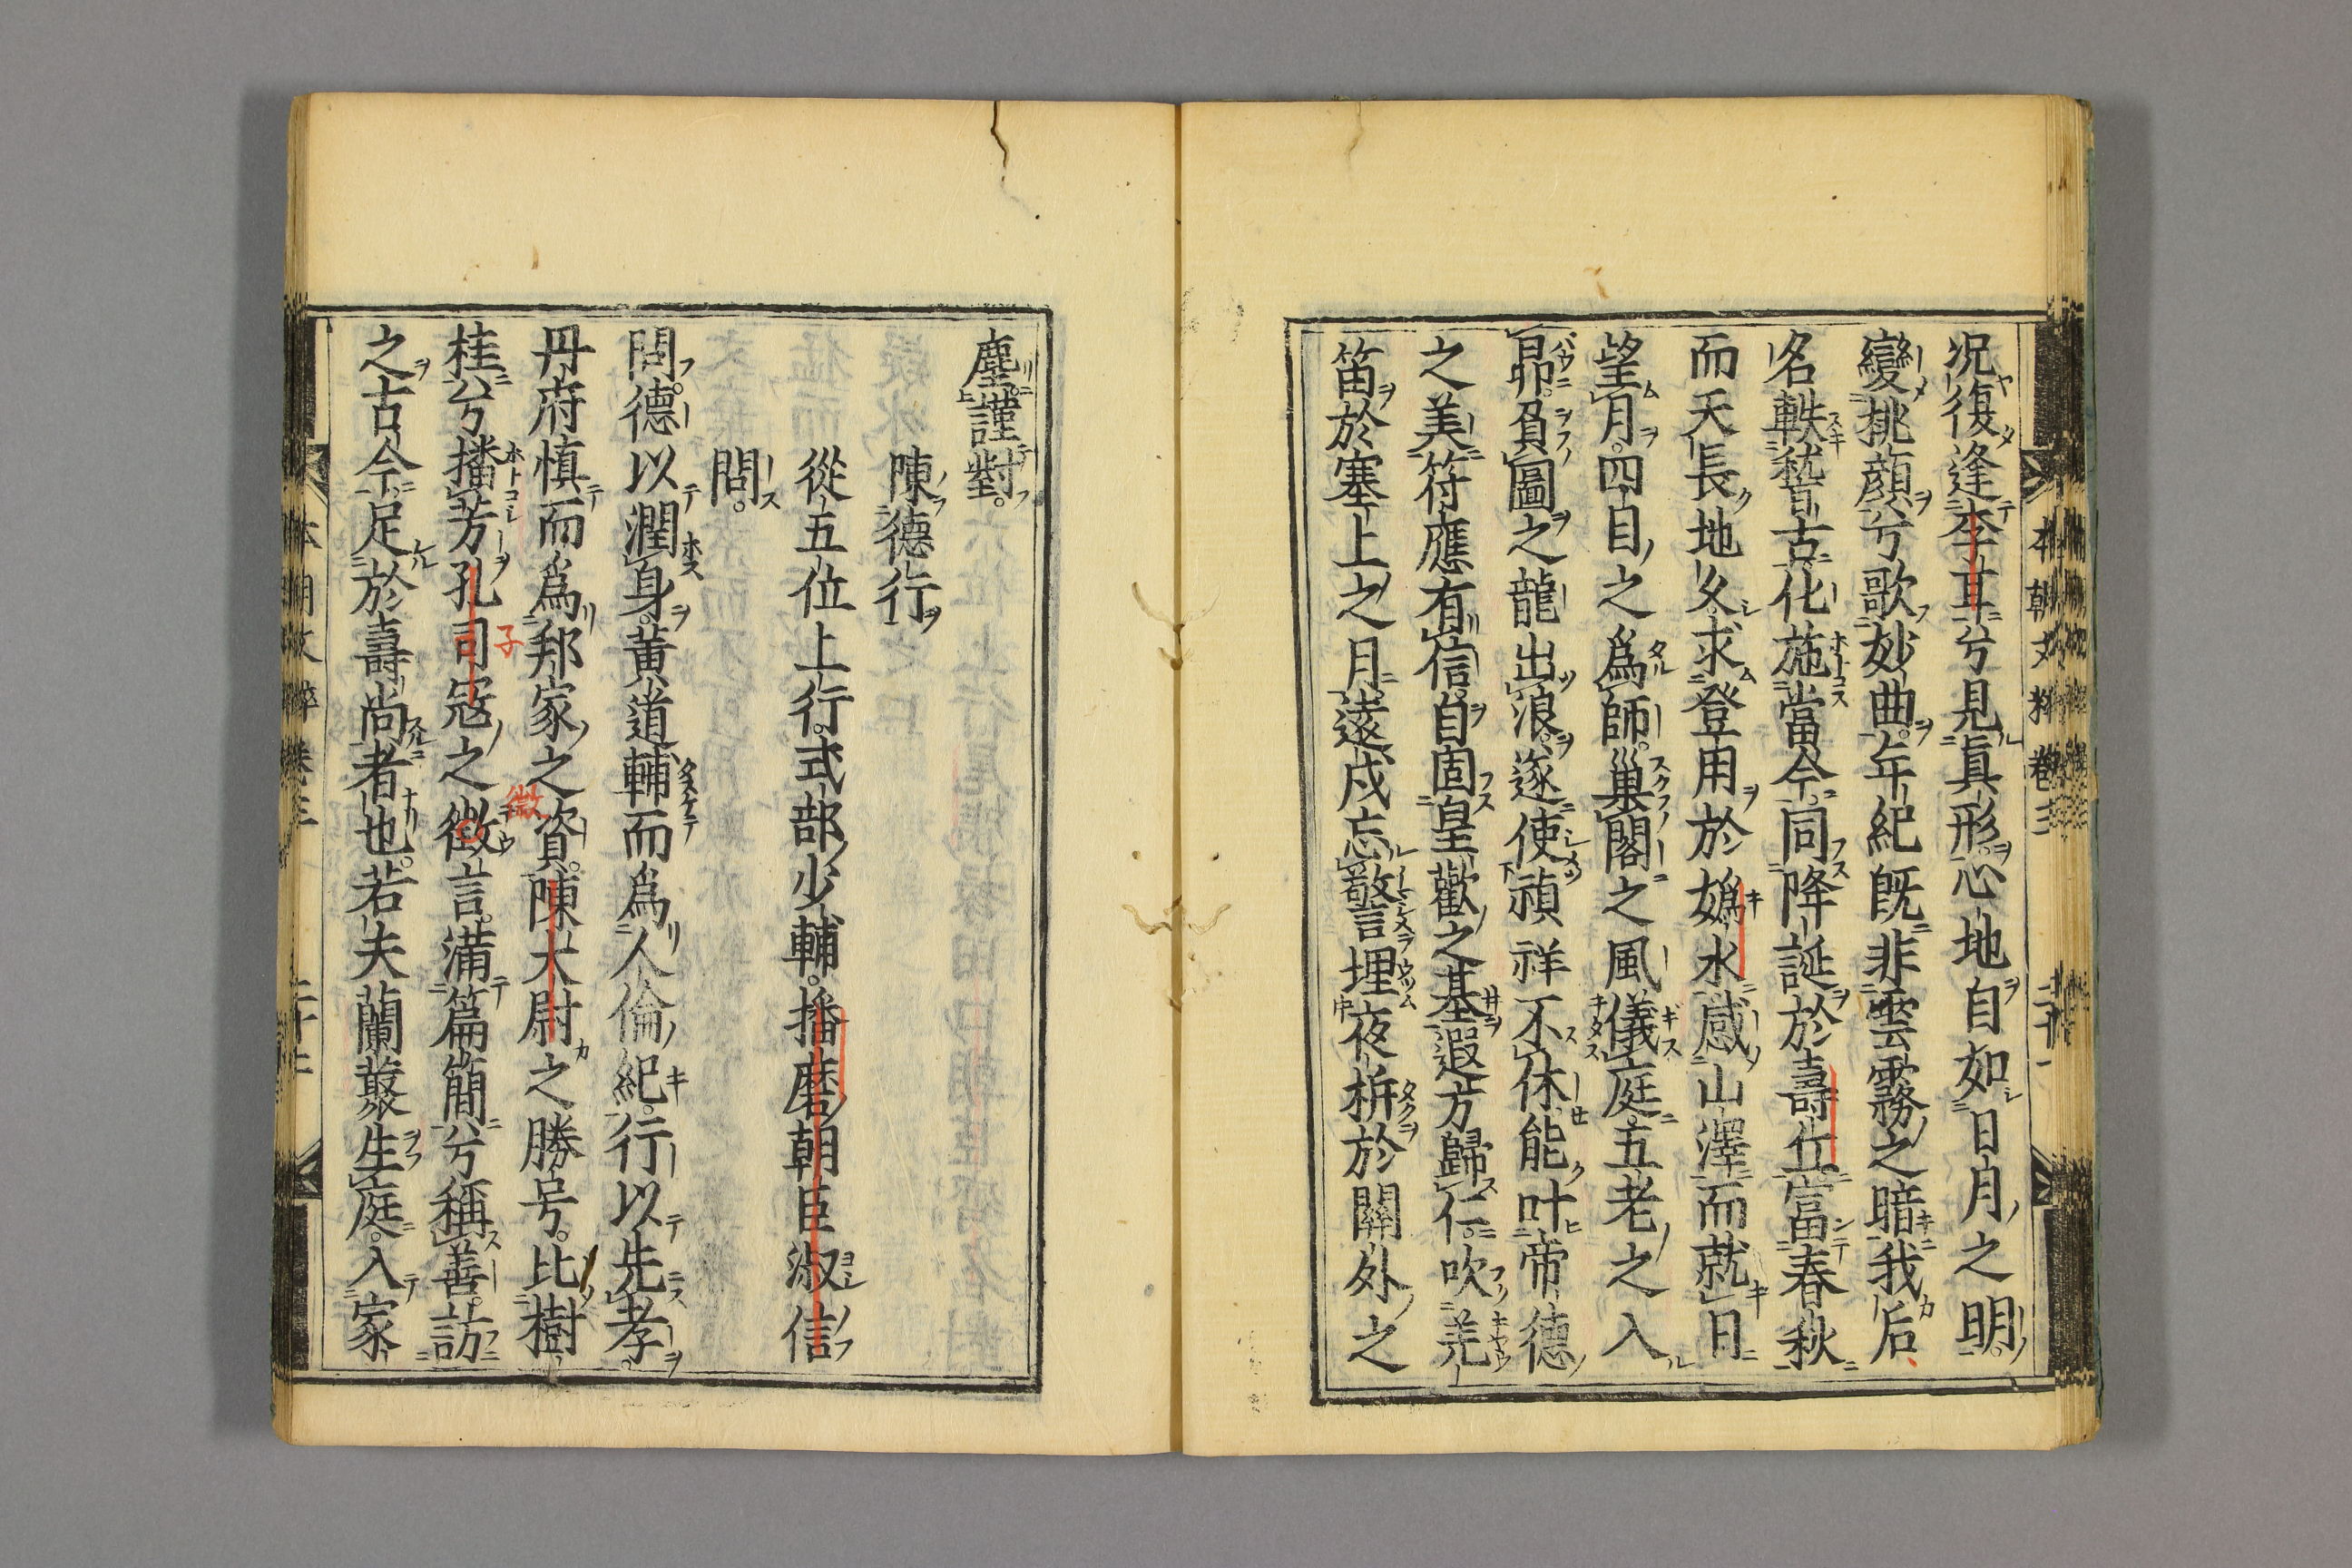 況復逢李耳兮見真形心地自如日月之明
變挑顔兮歌妙曲年紀既非雲霧之暗我后
名軼稽古化施當今同降誕於壽丘富春秋
而天長地久求登用於嬀水感山澤而就日
望月四目之爲師巢閣之風儀庭五老之入
昴負圖之龍出浪遂使禎祥不休能叶帝德
之美符應有信自固皇歡之基遐方歸仁吹羌
笛於塞上之月遠戍忘警埋夜柝於關外之
本朝文粹卷三
塵謹對
陳德行
從五位上行式部少輔播磨朝臣淑信
問
問德以潤身黄道輔而爲人倫紀行以先孝
丹府慎而爲邦家之資陳太尉之勝号比樹
桂兮播芳孔司寇之徴言満篇簡兮稱善訪
子
微
之古今足於壽尚者也若夫蘭藂生庭入家
本朝文粹卷三